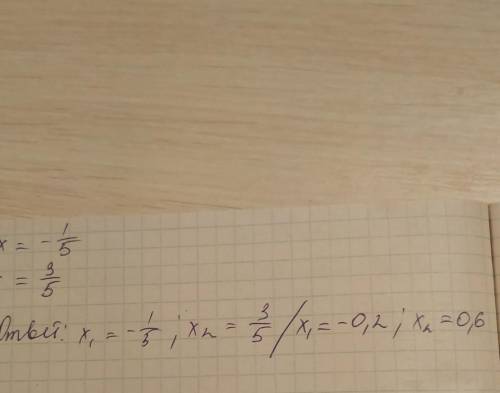 x = -1/5
= 3/5
Ответ: x₁ = -1/5 ; x₂ = 3/5 / x₁ = -0,2 ; x₂ = 0,6